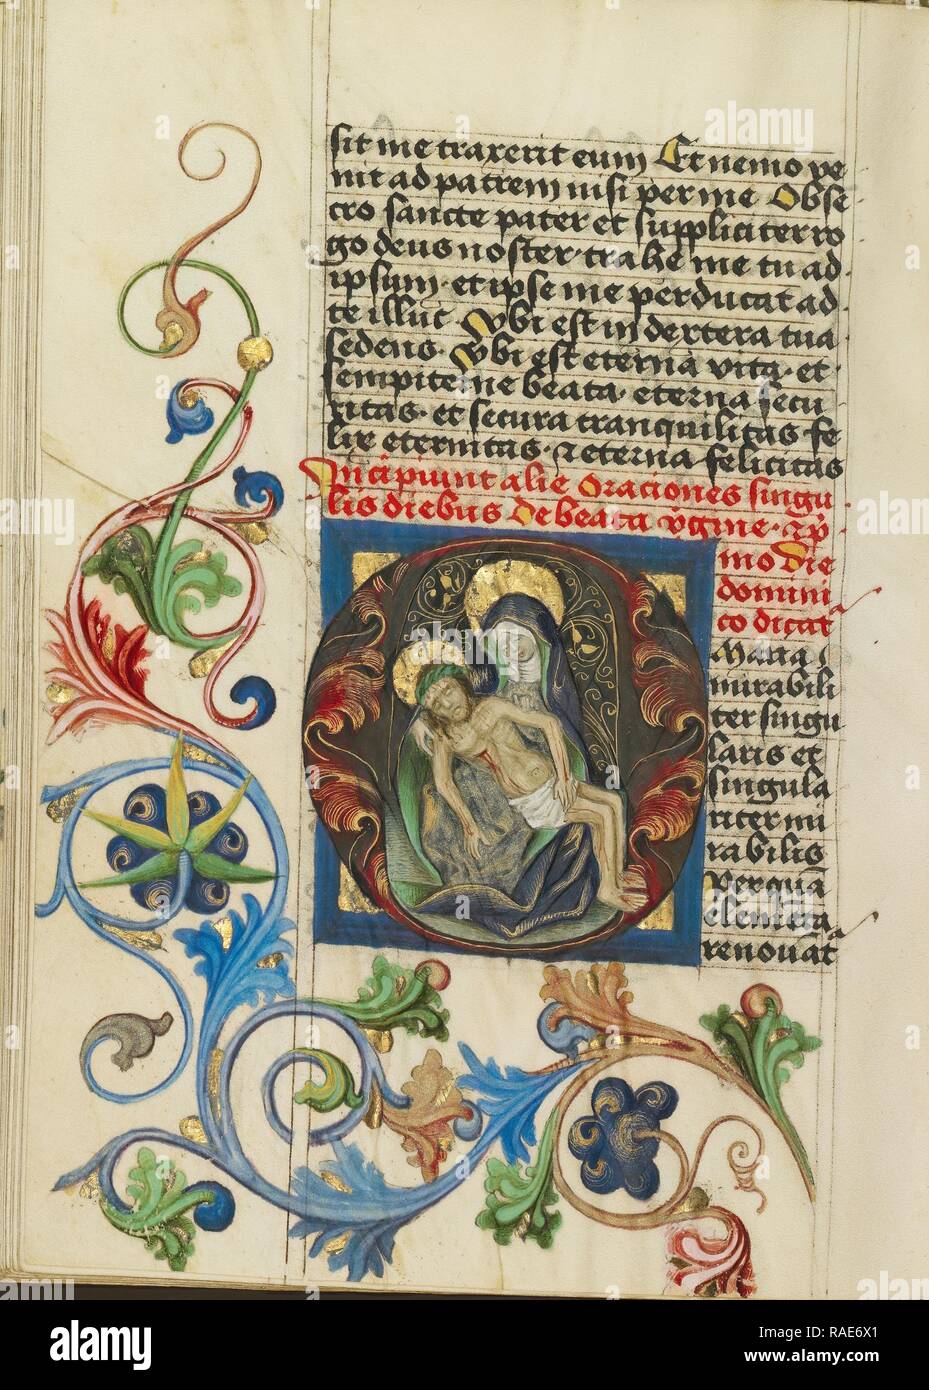 sit me traxerit eum Et nemo ve
nit ad patrem nisi per me Obse
cro sancte pater et suppliciter ro
go deus noster trahe me tu ad
ipsum et ipse me perducat ad
te illuc Ubi est in dextera tua
sedens Ubi est eterna vita et
sempiterne beata eterna secu
ritas et secura tranquilitas fe
lix eternitas et eterna felicitas
Incipiunt alie oraciones singu
lis diebus de beata virgine
mo die
domini
co dicat
Maria
mirabili
ter singu
laris et
singula
riter mi
rabilis
per quā
elemēta
renovāt
alamy
Image ID: RAE6X1
www.alamy.com